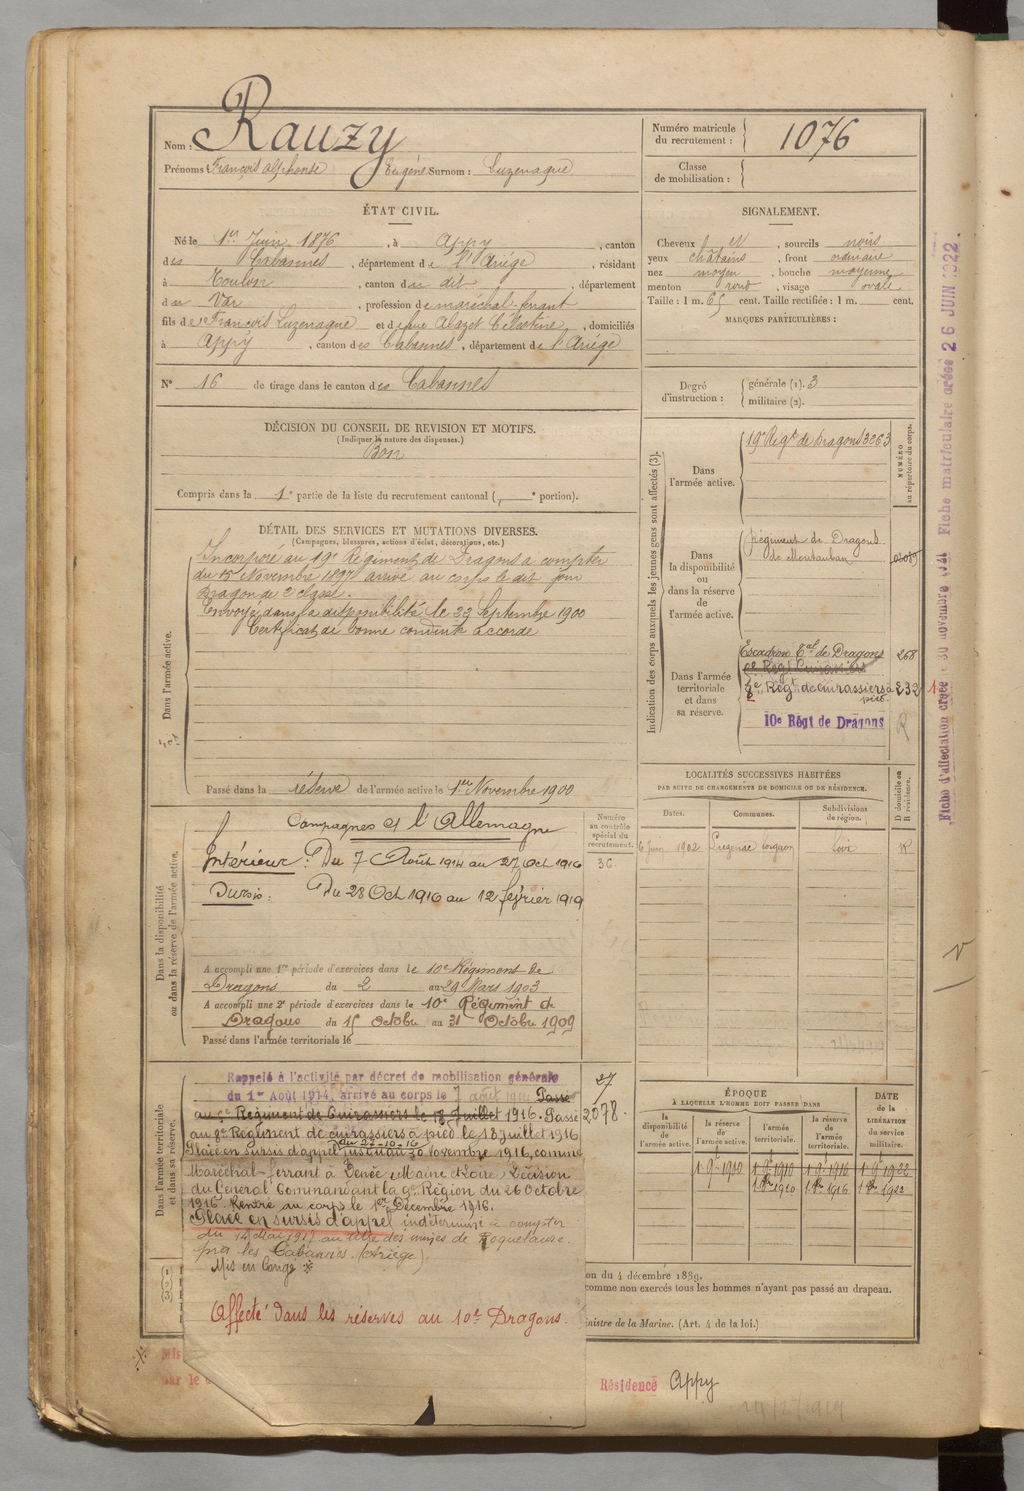 Nom : Rauzy
Prénoms : François Alphonse Eugène Surnom : Luzenaque
Numéro matricule du recrutement : 1076
Classe de mobilisation :
ÉTAT CIVIL.
Né le 1er Juin 1876, à Appy, canton
des Cabannes, département de l'Ariège, résidant
à Toulon, canton du dit, département
du Var, profession de maréchal-ferrant
fils de François Luzenaque et de feue Alazet Célestine, domiciliés
à Appy, canton des Cabannes, département de l'Ariège
N° 16 de tirage dans le canton des Cabannes
SIGNALEMENT.
Cheveux et, sourcils noirs
yeux châtains, front ordinaire
nez moyen, bouche moyenne
menton rond, visage ovale
Taille : 1 m. 65 cent. Taille rectifiée : 1 m. cent.
MARQUES PARTICULIÈRES :
Degré d'instruction : générale (1). 3
militaire (2).
DÉCISION DU CONSEIL DE REVISION ET MOTIFS.
(Indiquer la nature des dispenses.)
Bon
Compris dans la 1e partie de la liste du recrutement cantonal ( e portion).
DÉTAIL DES SERVICES ET MUTATIONS DIVERSES.
(Campagnes, blessures, actions d'éclat, décorations, etc.)
Dans l'armée active.
Incorporé au 19e Régiment de Dragons à compter
du 15 Novembre 1897 arrivé au corps le dit jour
Dragon de 2e classe.
Envoyé dans la disponibilité le 23 Septembre 1900
Certificat de bonne conduite accordé
Passé dans la réserve de l'armée active le 1er Novembre 1900
Indication des corps auxquels les jeunes gens sont affectés (3).
NUMÉRO au répertoire du corps.
Dans l'armée active.
19e Régt de Dragons 3063
Dans la disponibilité ou dans la réserve de l'armée active.
régiment de Dragons
de Montauban
Dans l'armée territoriale et dans sa réserve.
Escadron Tal de Dragons 268
Regt Cuirassiers
Regt de cuirassiers à pied 232
10e Régt de Dragons R
LOCALITÉS SUCCESSIVES HABITÉES
PAR SUITE DE CHANGEMENTS DE DOMICILE OU DE RÉSIDENCE.
Dates. Communes. Subdivisions de région. D domicile ou R résidence.
6 Juin 1902 Foix R
Dans la disponibilité ou dans la réserve de l'armée active.
Numéro au contrôle spécial du recrutement.
36
Campagnes et l'Allemagne
Intérieur : Du 7 Août 1914 au 27 Oct 1916
Sursis : Du 28 Oct 1916 au 12 février 1919
A accompli une 1re période d'exercices dans le 10e Régiment de
Dragons du 2 au 29 Mars 1903
A accompli une 2e période d'exercices dans le 10e Régiment de
Dragons du 15 Octobre au 31 Octobre 1909
Passé dans l'armée territoriale le
Dans l'armée territoriale et dans sa réserve.
Rappelé à l'activité par décret de mobilisation générale
du 1er Août 1914, arrivé au corps le 7 août 1914 Passé
au 9e Régiment de Cuirassiers le 18 Juillet 1916. Passé
au 8e Régiment de cuirassiers à pied le 18 juillet 1916
du 27-10-16
Placé en sursis d'appel jusqu'au 30 Novembre 1916, comme
Maréchal-ferrant à Denée (Maine et Loire) Décision
du Général Commandant la 9e Région du 26 Octobre
1916. Rentré au corps le 1er Décembre 1916.
Placé en sursis d'appel indéterminé à compter
du 14 Mai 1917 au titre des mines de Roquelaure
par les Cabannes (Ariège).
Mis en Congé
Affecté dans les réserves au 10e Dragons.
27
2078.
ÉPOQUE
À LAQUELLE L'HOMME DOIT PASSER DANS
la disponibilité de l'armée active. la réserve de l'armée active. l'armée territoriale. la réserve de l'armée territoriale.
DATE de la LIBÉRATION du service militaire.
1 9bre 1900 1 9bre 1910 1 9bre 1916 1 9bre 1922
(1) (2) (3)
on du 4 décembre 1889.
comme non exercés tous les hommes n'ayant pas passé au drapeau.
inistre de la Marine. (Art. 4 de la loi.)
Mis
par le
Résidence Appy
Fiche matriculaire créée 26 JUIN 1922.
Fiche d'affectation créée 30 novembre